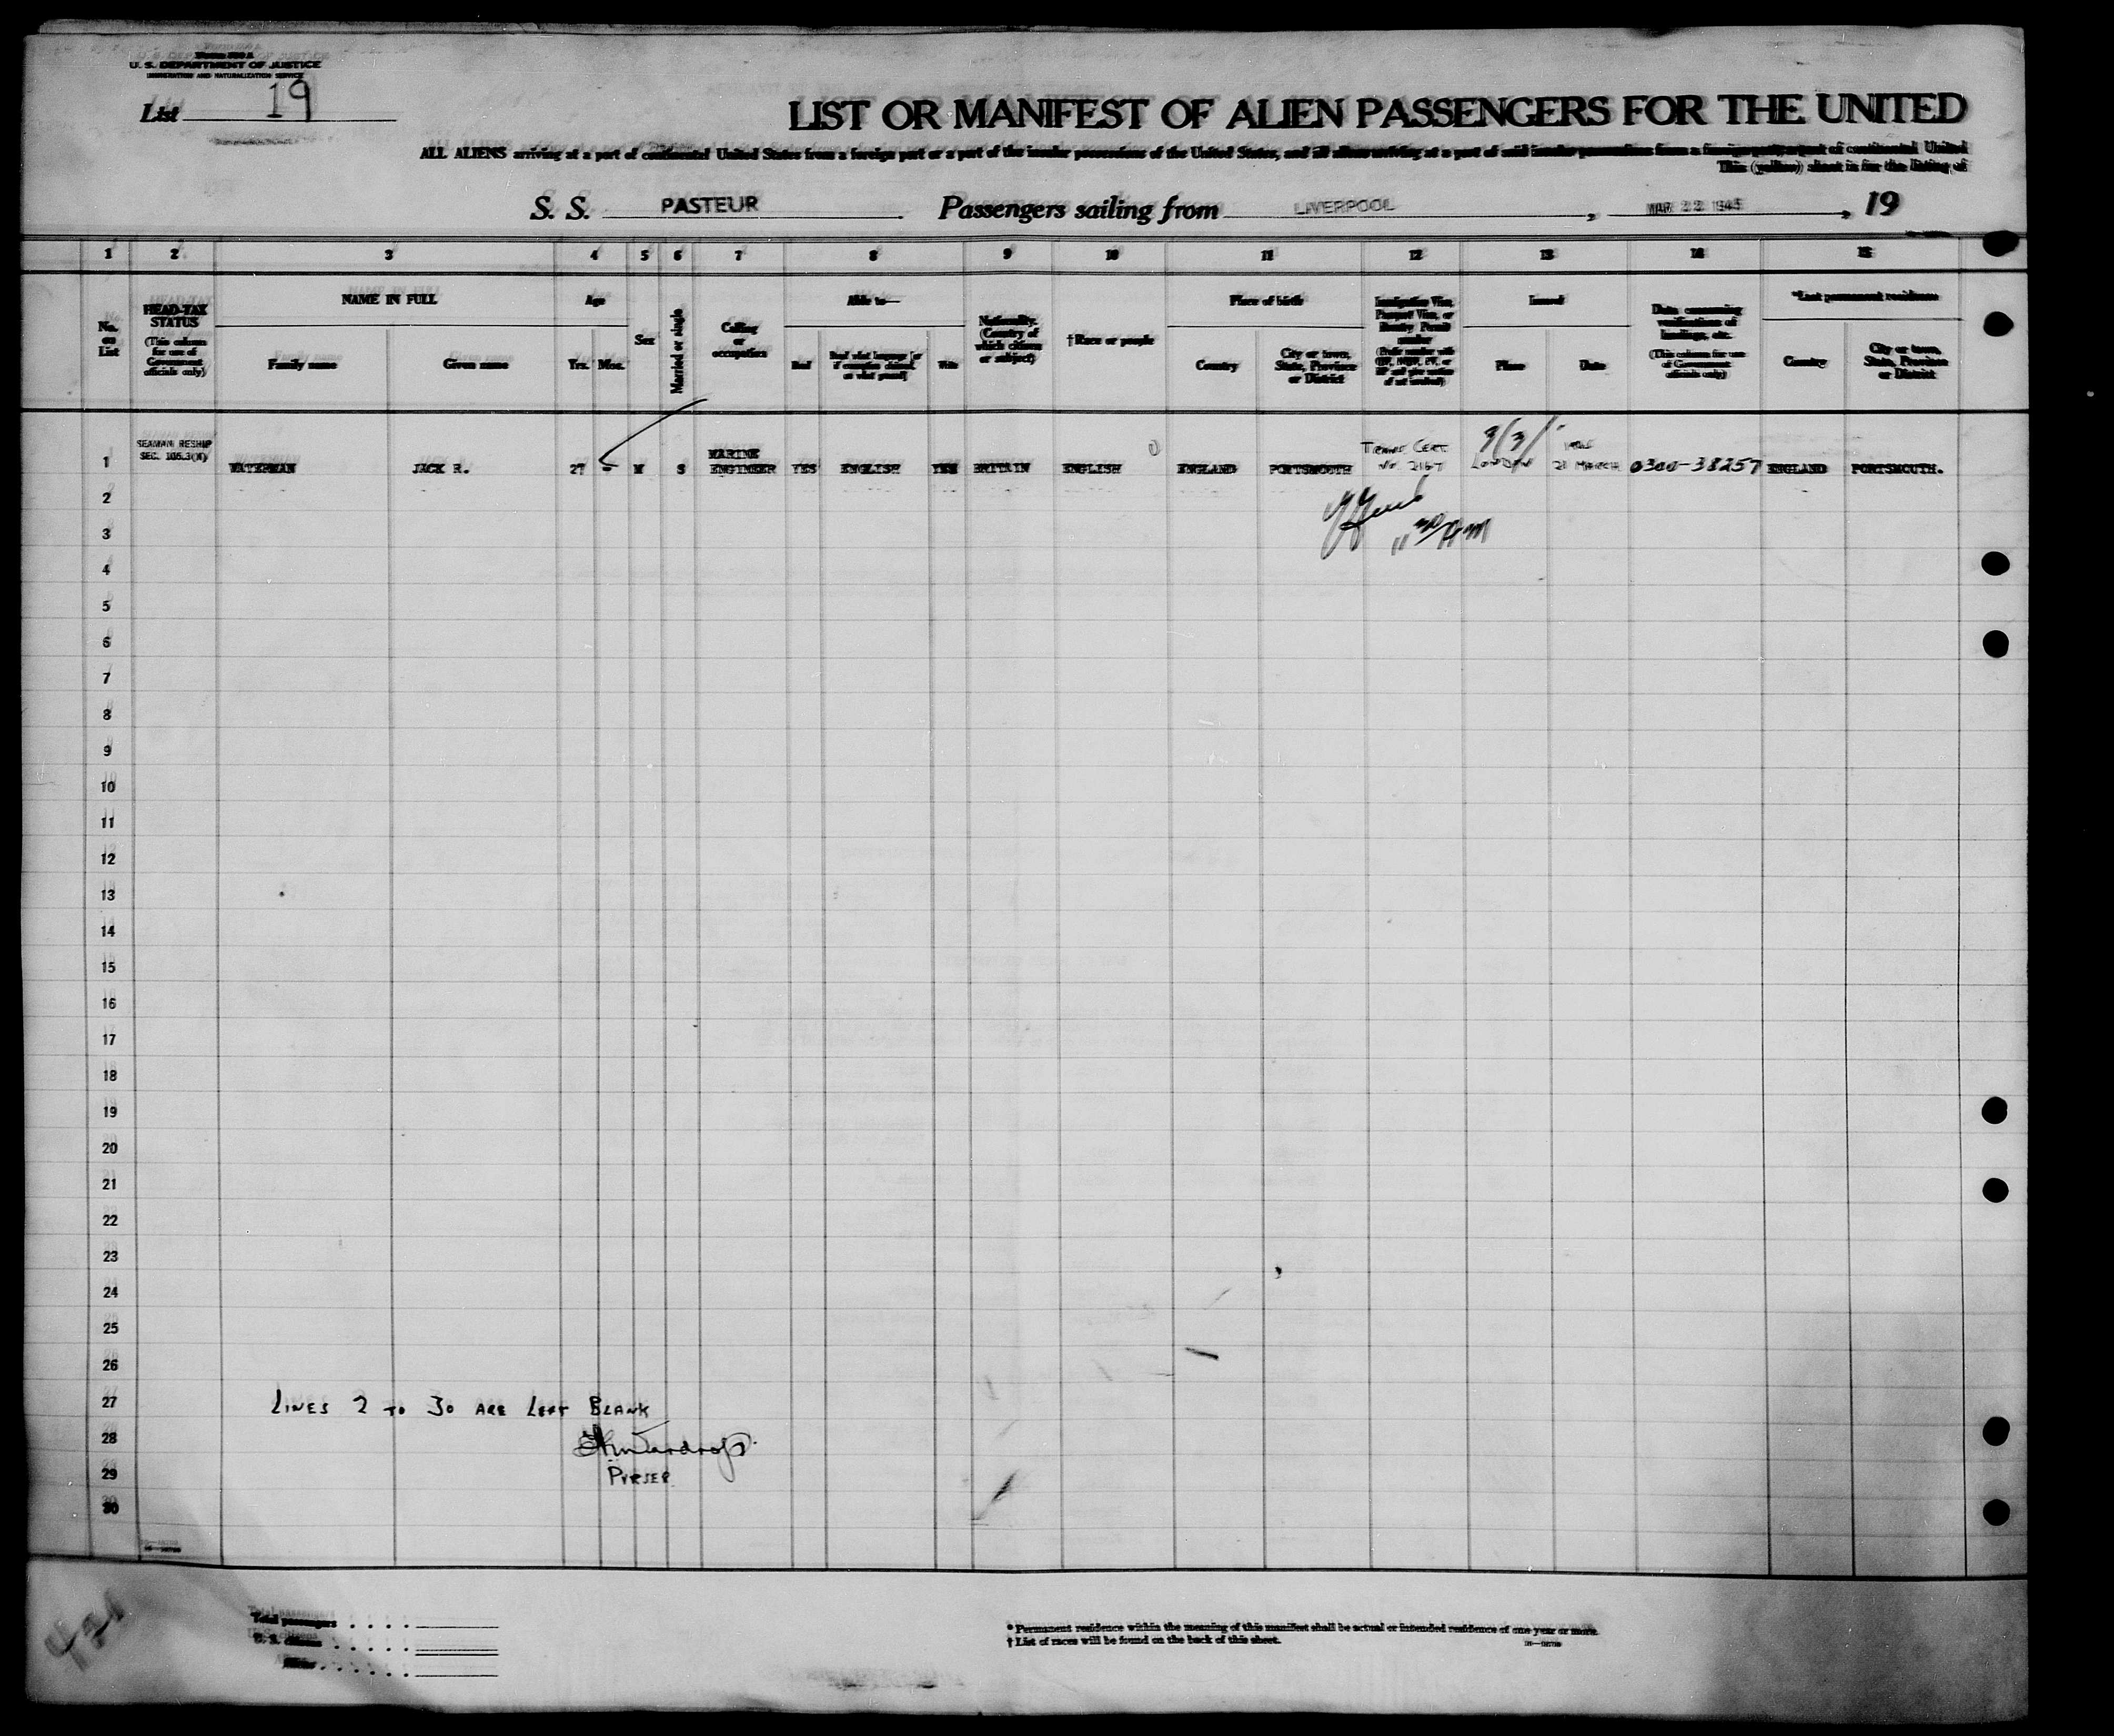 U. S. DEPARTMENT OF JUSTICE
IMMIGRATION AND NATURALIZATION SERVICE
List 19
LIST OR MANIFEST OF ALIEN PASSENGERS FOR THE UNITED
ALL ALIENS arriving at a port of continental United States from a foreign port or a port of the insular possessions of the United States, and all aliens arriving at a port of said insular possessions from a foreign port, a port of continental United
This (yellow) sheet is for the listing of
S. S. PASTEUR Passengers sailing from LIVERPOOL, MAR 22 1945, 19
1 2 3 4 5 6 7 8 9 10 11 12 13 14 15
No. on List
HEAD-TAX STATUS (This column for use of Government officials only)
NAME IN FULL
Family name Given name
Age
Yrs. Mos.
Sex
Married or single
Calling or occupation
Able to—
Read Read what language [or if exemption claimed, on what ground] Write
Nationality. (Country of which citizen or subject)
†Race or people
Place of birth
Country City or town, State, Province or District
Immigration Visa, Passport Visa, or Reentry Permit number
Issued
Place Date
Data concerning verifications of landings, etc. (This column for use of Government officials only)
*Last permanent residence
Country City or town, State, Province or District
SEAMAN RESHIP
SEC. 105.3(N)
1 WATERMAN JACK R. 27 - M S MARINE ENGINEER YES ENGLISH YES BRITAIN ENGLISH ENGLAND PORTSMOUTH No. 2167 LONDON 21 MARCH 0300-38257 ENGLAND PORTSMOUTH.
2
3
4
5
6
7
8
9
10
11
12
13
14
15
16
17
18
19
20
21
22
23
24
25
26
27 LINES 2 TO 30 ARE LEFT BLANK
28
29 PURSER
30
Total passengers . . . .
U. S. citizens . . . . .
Aliens . . . . . .
* Permanent residence within the meaning of this manifest shall be actual or intended residence of one year or more.
† List of races will be found on the back of this sheet.